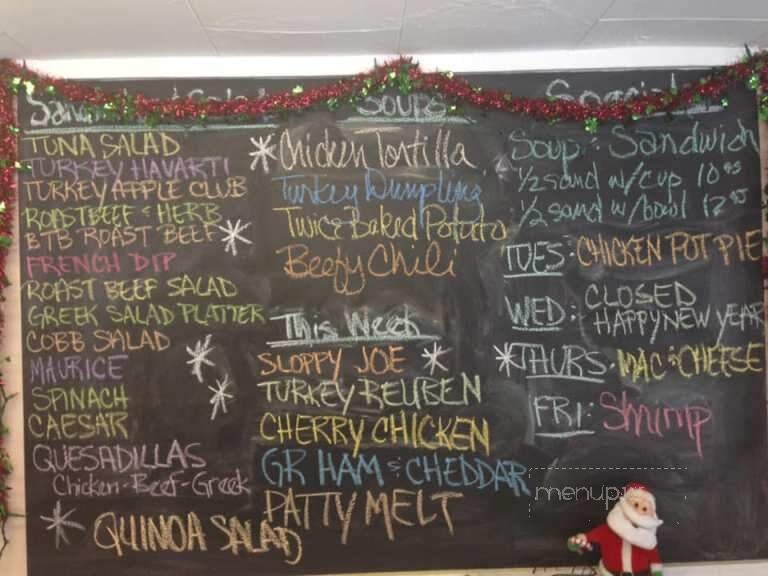 TUNA SALAD
TURKEY HAVARTI
TURKEY APPLE CLUB
ROAST BEEF & HERB
BTB ROAST BEEF
FRENCH DIP
ROAST BEEF SALAD
GREEK SALAD PLATTER
COBB SALAD
MAURICE
SPINACH
CAESAR
QUESADILLAS
Chicken-Beef-Greek
QUINOA SALAD
SOUPS
Chicken Tortilla
Turkey Dumpling
Twice Baked Potato
Beefy Chili
This Week
SLOPPY JOE
TURKEY REUBEN
CHERRY CHICKEN
GR HAM & CHEDDAR
PATTY MELT
Specials
Soup & Sandwich
1/2 sand w/cup 10
1/2 sand w/bowl 12
TUES: CHICKEN POT PIE
WED: CLOSED
HAPPY NEW YEAR
THURS: MAC & CHEESE
FRI: Shrimp
menupix